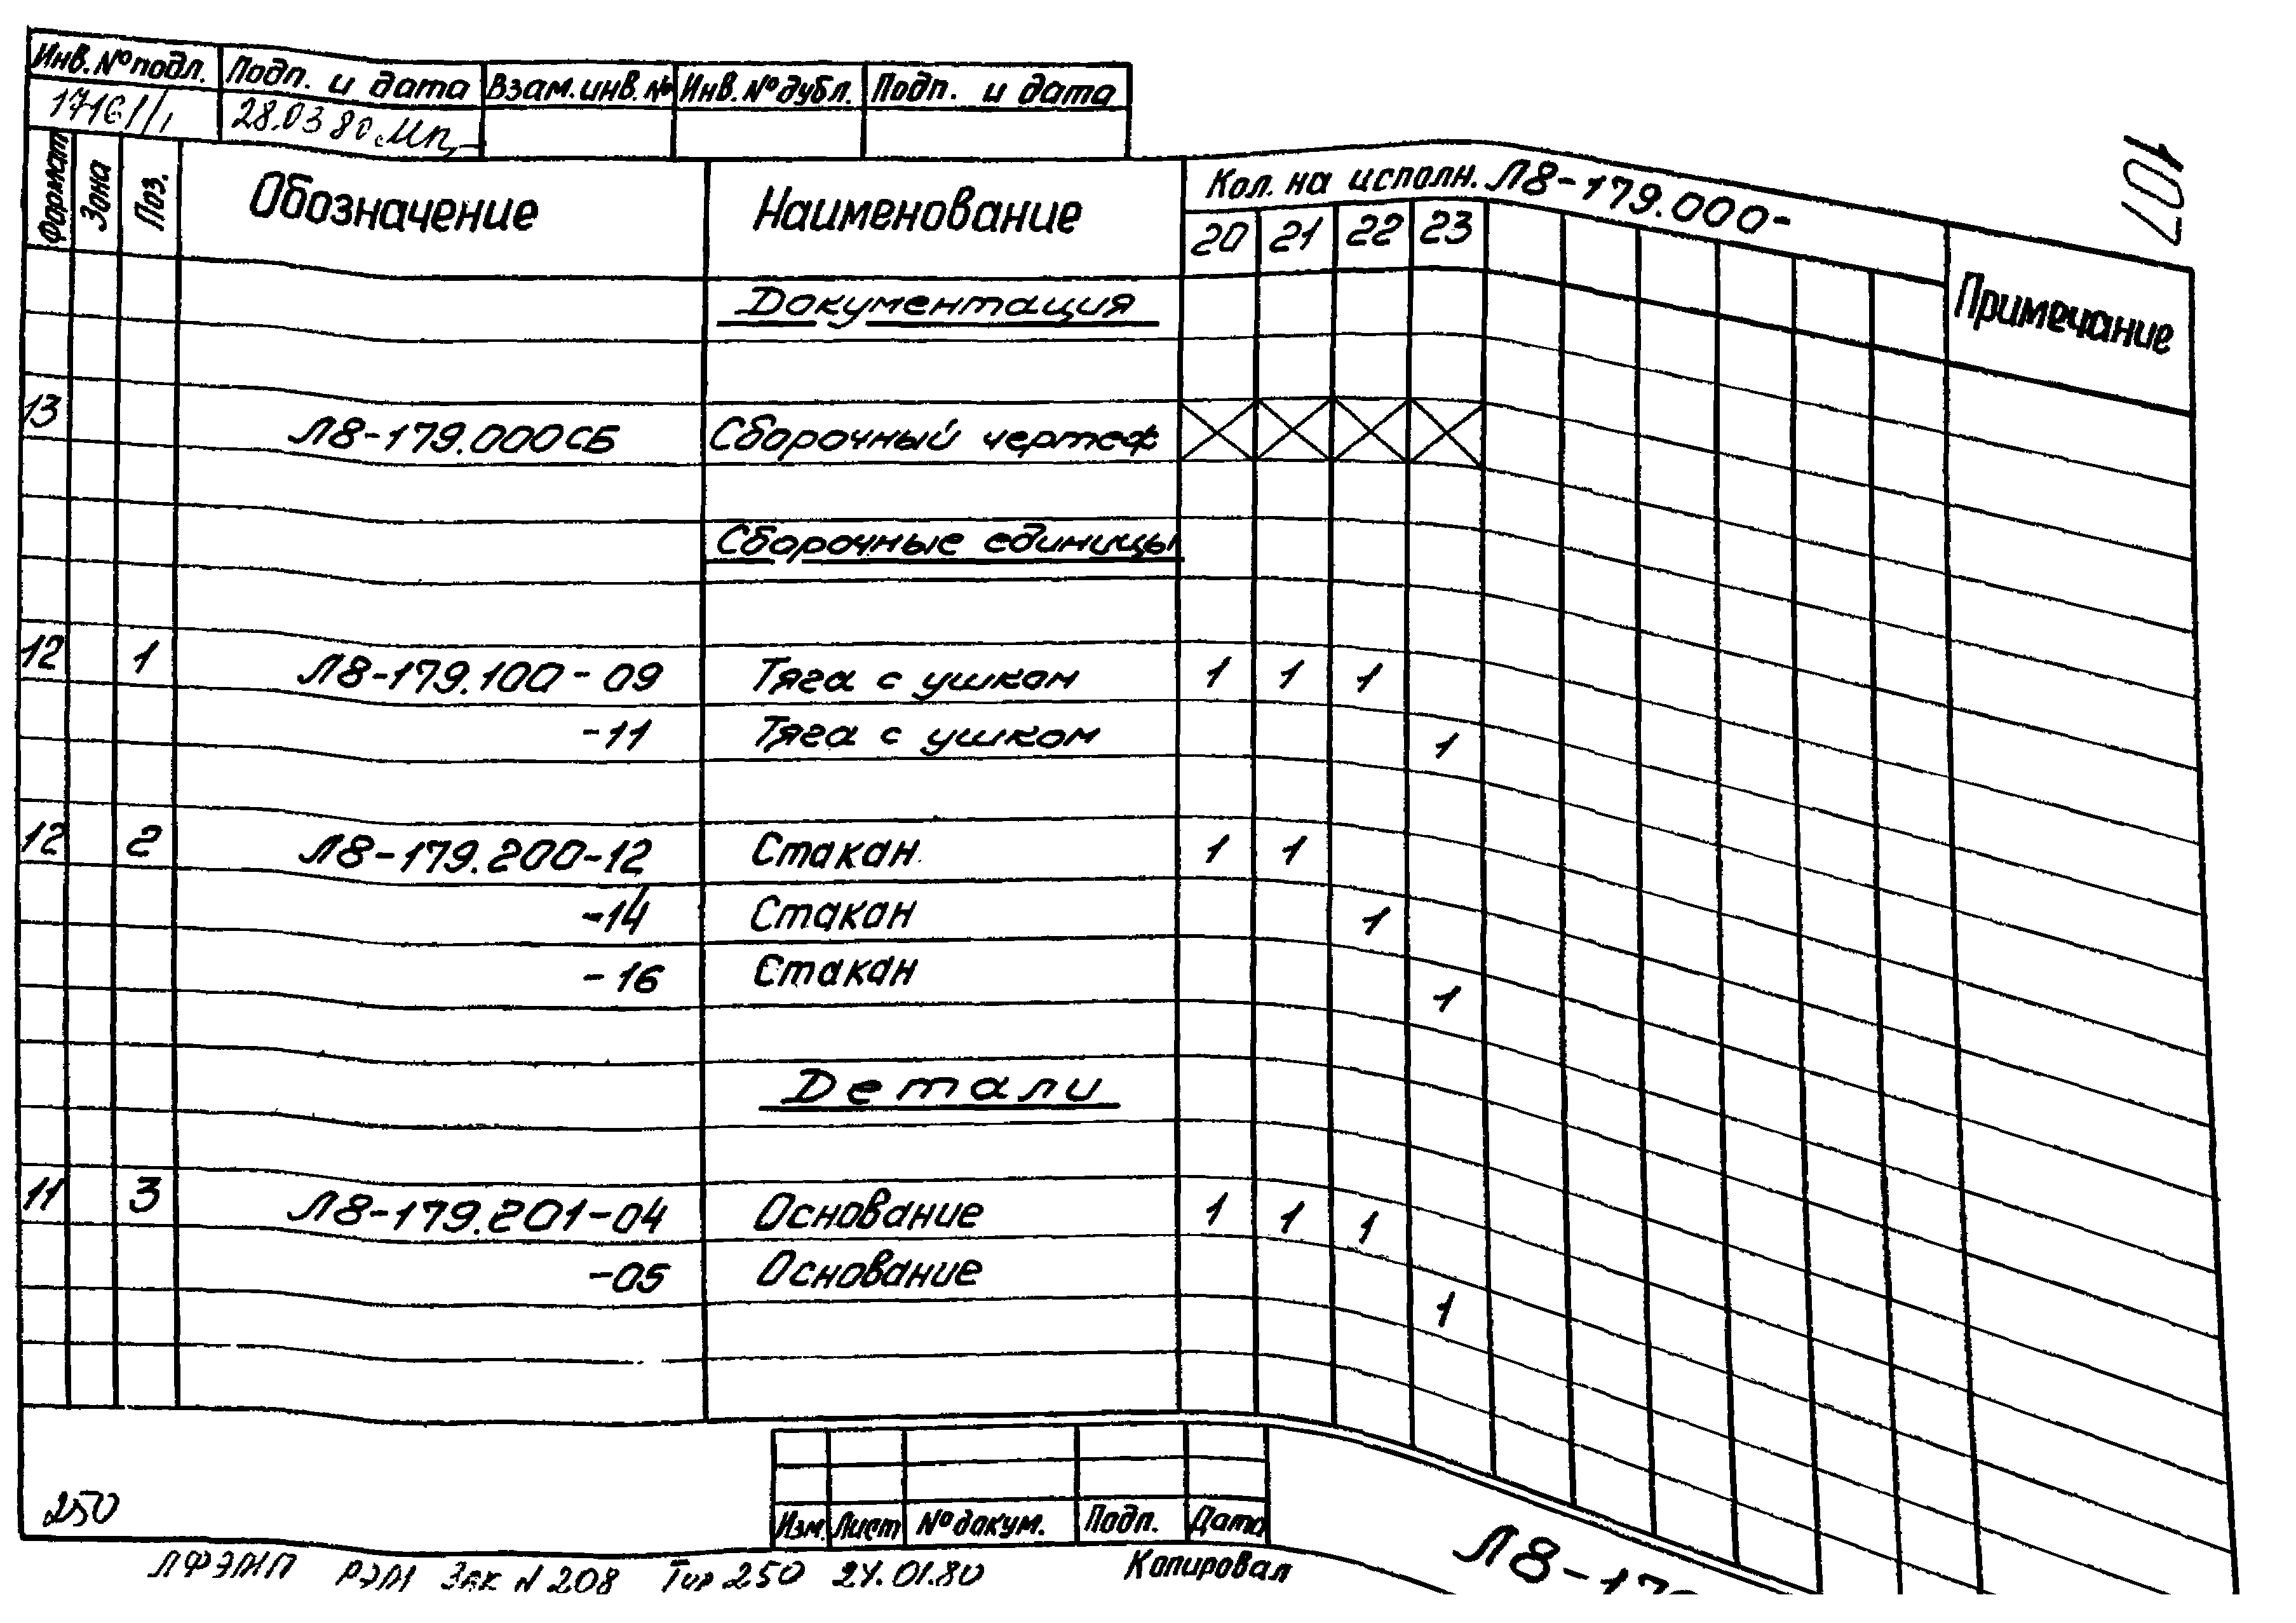 Инв.№подл. Подп. и дата Взам.инв.№ Инв.№дубл. Подп. и дата
28.03 80
107
Формат Зона Поз. Обозначение Наименование Кол. на исполн. Л8-179.000- Примечание
20 21 22 23
Документация
13 Л8-179.000СБ Сборочный чертеж
Сборочные единицы
12 1 Л8-179.100-09 Тяга с ушком 1 1 1
-11 Тяга с ушком 1
12 2 Л8-179.200-12 Стакан 1 1
-14 Стакан 1
-16 Стакан 1
Детали
11 3 Л8-179.201-04 Основание 1 1 1
-05 Основание 1
250
Изм. Лист №докум. Подп. Дата
ЛФЭМП РЭМ Зак N 208 Тир 250 24.01.80
Копировал
Л8-179